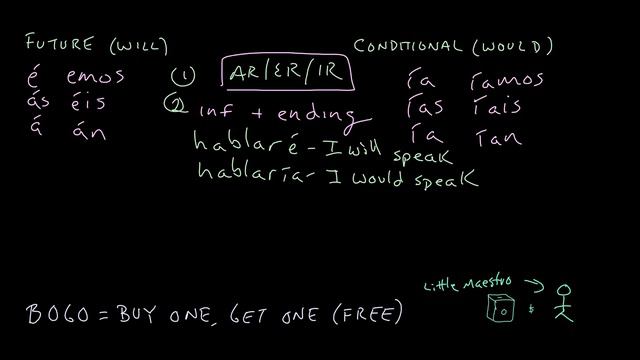 FUTURE (WILL)
é emos
ás éis
á án
① AR/ER/IR
② inf + ending
hablaré - I will speak
hablaría - I would speak
CONDITIONAL (WOULD)
ía íamos
ías íais
ía ían
Little Maestro
BOGO = BUY ONE, GET ONE (FREE)